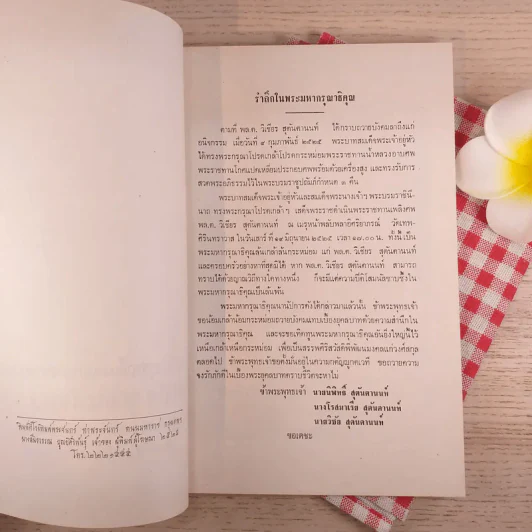 พิมพ์ที่โรงพิมพ์พระจันทร์ ท่าพระจันทร์ ถนนมหาราช กรุงเทพฯ
เจ้าของ ผู้พิมพ์ผู้โฆษณา ๒๕๒๕
โทร.
รำลึกในพระมหากรุณาธิคุณ
ตามที่ พล.ต. วิเชียร สุตันตานนท์ ได้กราบถวายบังคมลาถึงแก่
อนิจกรรม เมื่อวันที่ ๙ กุมภาพันธ์ ๒๕๒๕ พระบาทสมเด็จพระเจ้าอยู่หัว
ได้ทรงพระกรุณาโปรดเกล้าโปรดกระหม่อมพระราชทานน้ำหลวงอาบศพ
พระราชทานโกศแปดเหลี่ยมประกอบศพพร้อมด้วยเครื่องสูง และทรงรับการ
สวดพระอภิธรรมไว้ในพระบรมราชูปถัมภ์กำหนด ๓ คืน
พระบาทสมเด็จพระเจ้าอยู่หัวและสมเด็จพระนางเจ้าฯ พระบรมราชินี-
นาถ ทรงพระกรุณาโปรดเกล้าฯ เสด็จพระราชดำเนินพระราชทานเพลิงศพ
พล.ต. วิเชียร สุตันตานนท์ ณ เมรุหน้าพลับพลาอิศริยาภรณ์ วัดเทพ-
ศิรินทราวาส ในวันเสาร์ ที่ ๑๙ มิถุนายน ๒๕๒๕ เวลา ๑๗.๐๐ น. ทั้งนี้เป็น
พระมหากรุณาธิคุณล้นเกล้าล้นกระหม่อม แก่ พล.ต. วิเชียร สุตันตานนท์
และครอบครัวอย่างหาที่สุดมิได้ หาก พล.ต. วิเชียร สุตันตานนท์ สามารถ
ทราบได้ด้วยญาณวิถีทางใดทางหนึ่ง ก็จะมีแต่ความปีติโสมนัสซาบซึ้งใน
พระมหากรุณาธิคุณเป็นล้นพ้น
พระมหากรุณาธิคุณนานัปการดังได้กล่าวมาแล้วนั้น ข้าพระพุทธเจ้า
ขอน้อมเกล้าน้อมกระหม่อมถวายบังคมแทบเบื้องยุคลบาทด้วยความสำนึกใน
พระมหากรุณาธิคุณ และจะขอเทิดทูนพระมหากรุณาธิคุณอันยิ่งใหญ่นี้ไว้
เหนือเกล้าเหนือกระหม่อม เพื่อเป็นสรรพศิริสวัสดิ์พิพัฒนมงคลแก่วงศ์สกุล
ตลอดไป ข้าพระพุทธเจ้าขอตั้งมั่นอยู่ในความกตัญญูกตเวที ขอถวายความ
จงรักภักดีในเบื้องพระยุคลบาทตราบชีวิตจะหาไม่
ข้าพระพุทธเจ้า นายนิพิทธิ์ สุตันตานนท์
นางโรสมาเรีย สุตันตานนท์
นายวิชัย สุตันตานนท์
ขอเดชะ